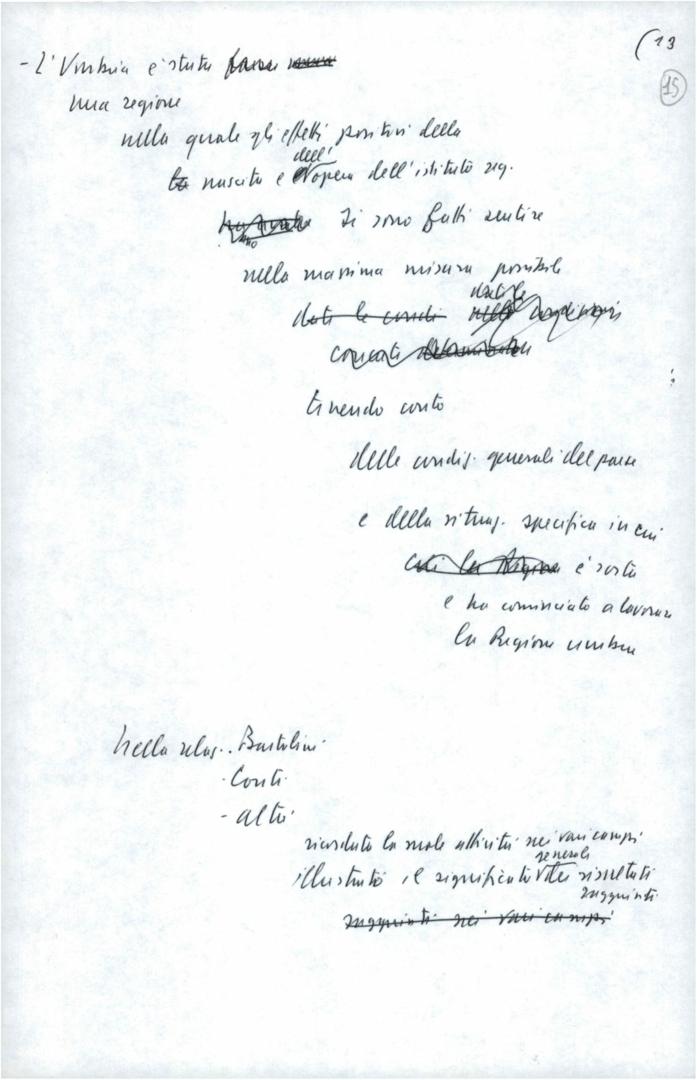 (13
15
- L'Umbria è stata forse
una regione
nella quale gli effetti positivi della
dell'
la nascita e opera dell'istituto reg.
si sono fatti sentire
nella massima misura possibile
date le
date le condi condizioni
concrete
tenendo conto
delle condiz. generali del paese
e della situaz. specifica in cui
cui la Regione è sorta
e ha cominciato a lavorare
la Regione umbra
Nella relaz.. Bartolini
- Conti
- altri
ricordato la mole attività nei vari campi
generale
illustrato il significato dei risultati
raggiunti
raggiunti nei vari campi